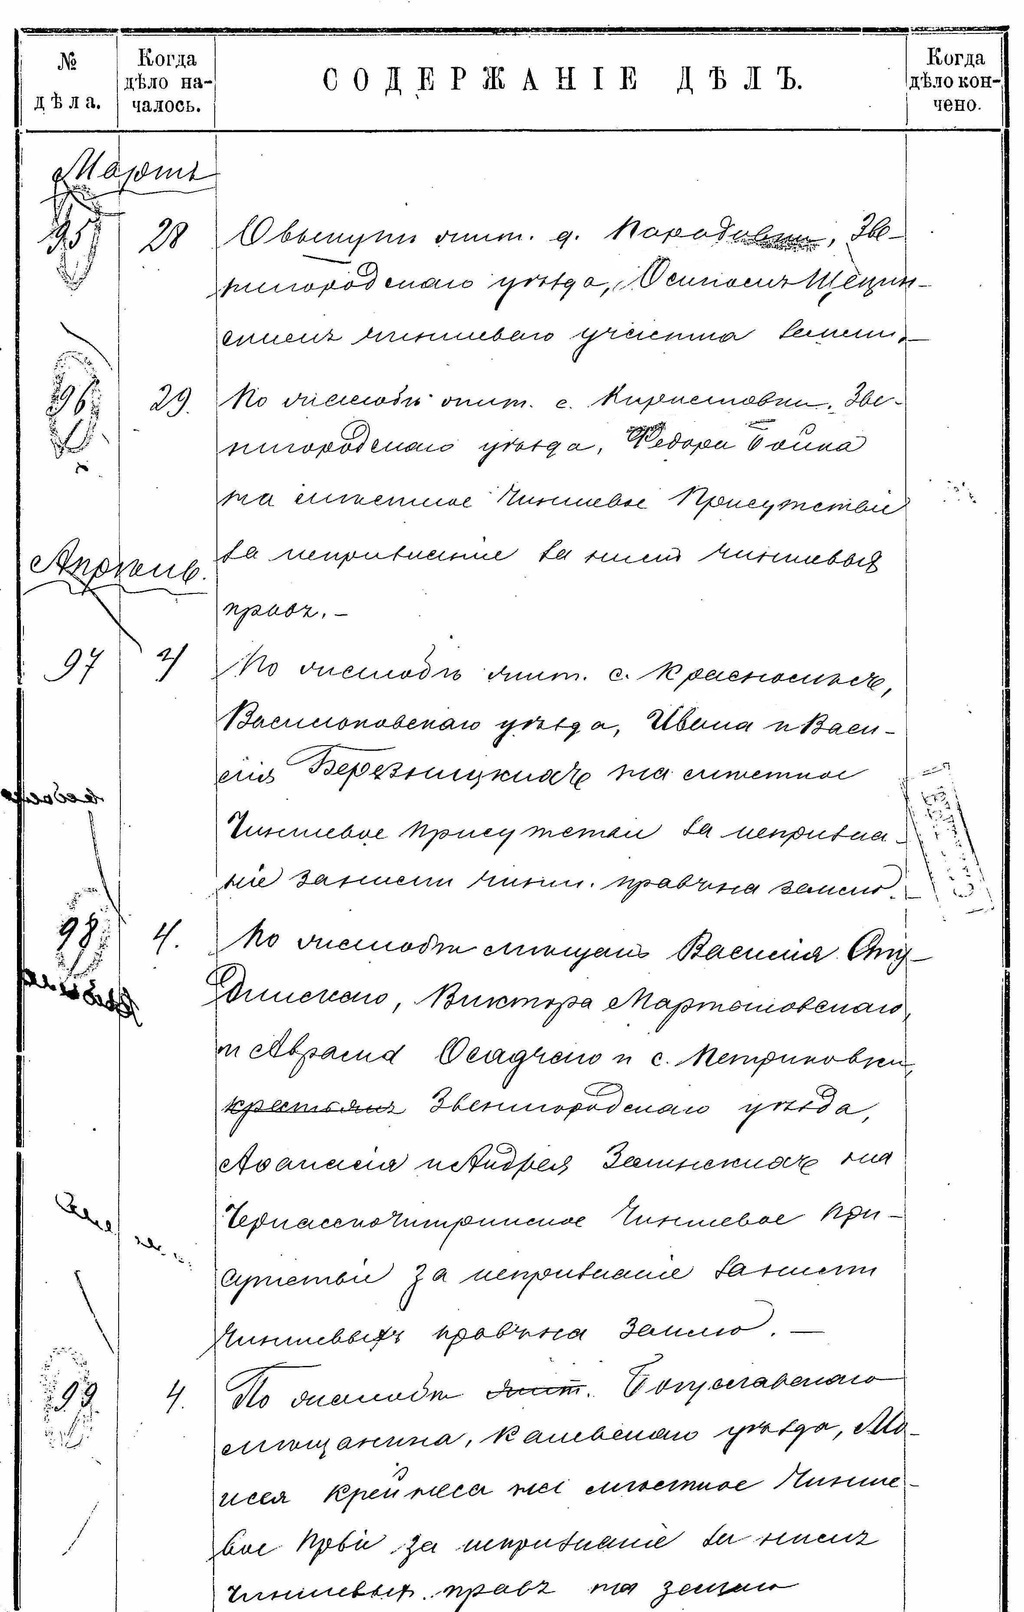 № дѣла.
Когда дѣло началось.
СОДЕРЖАНІЕ ДѢЛЪ.
Когда дѣло кончено.
Мартъ
95 28 О выкупѣ жит. д. Зве-
нигородскаго уѣзда, Осипомъ Щецин-
скимъ чиншеваго участка земли.—
96 29. По жалобѣ жит. с. Кирилловки, Зве-
нигородскаго уѣзда, Федора Бойка
на мѣстное Чиншевое Присутствіе
за непризнаніе за нимъ чиншевыхъ
правъ.—
Апрѣль.
97 4 По жалобѣ жит. с. Красносілье,
Васильковскаго уѣзда, Ивана и Васи-
лія Березницкихъ на мѣстное
Чиншевое Присутствіе за непризна-
ніе за ними чинш. правъ на землю.
98 4. По жалобѣ мѣщанъ Василія Сту-
динскаго, Виктора Мартошовскаго,
и Аврама Осадчаго и с. Петриковки,
крестьянъ Звенигородскаго уѣзда,
Аѳанасія и Андрея на
Черкасско-Чигиринское Чиншевое При-
сутствіе за непризнаніе за ними
Чиншевыхъ правъ на землю.—
99. 4. По жалобѣ жит. Богуславскаго
мѣщанина, Каневскаго уѣзда, Мо-
исея Крейнеса на мѣстное Чинше-
вое Прві за непризнаніе за нимъ
Чиншевых. правъ на землю